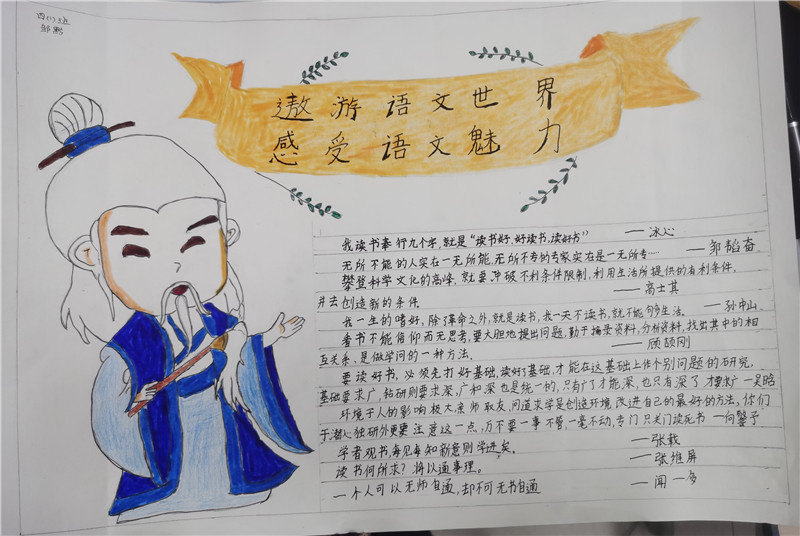 四(1)班
邹鹏
遨游语文世界
感受语文魅力
我读书奉行九个字,就是“读书好,好读书,读好书” —冰心
无所不能的人实在一无所能,无所不专的专家实在是一无所专— —邹韬奋
攀登科学文化的高峰,就要冲破不利条件限制,利用生活所提供的有利条件,
并去创造新的条件。 —高士其
我一生的嗜好,除了革命之外,就是读书,我一天不读书,就不能够生活。 —孙中山
看书不能信仰而无思考,要大胆地提出问题,勤于摘录资料,分析资料,找出其中的相
互关系,是做学问的一种方法。 —顾颉刚
要读好书,必须先打好基础,读好了基础,才能在这基础上作个别问题的研究。
基础要求广,钻研则要求深,广和深也是统一的,只有广了才能深,也只有深了才要求广—吴晗
环境于人的影响极大亲师取友,问道求学是创造环境改进自己的最好的方法,你们
于潜心独研外更要注意这一点,万不要一事不管,一毫不动,专门只关门读死书—向警予
学者观书,每见每知新意则学进矣。 —张载
读书何所求?将以通事理。 —张维屏
一个人可以无师自通,却不可无书自通 —闻一多